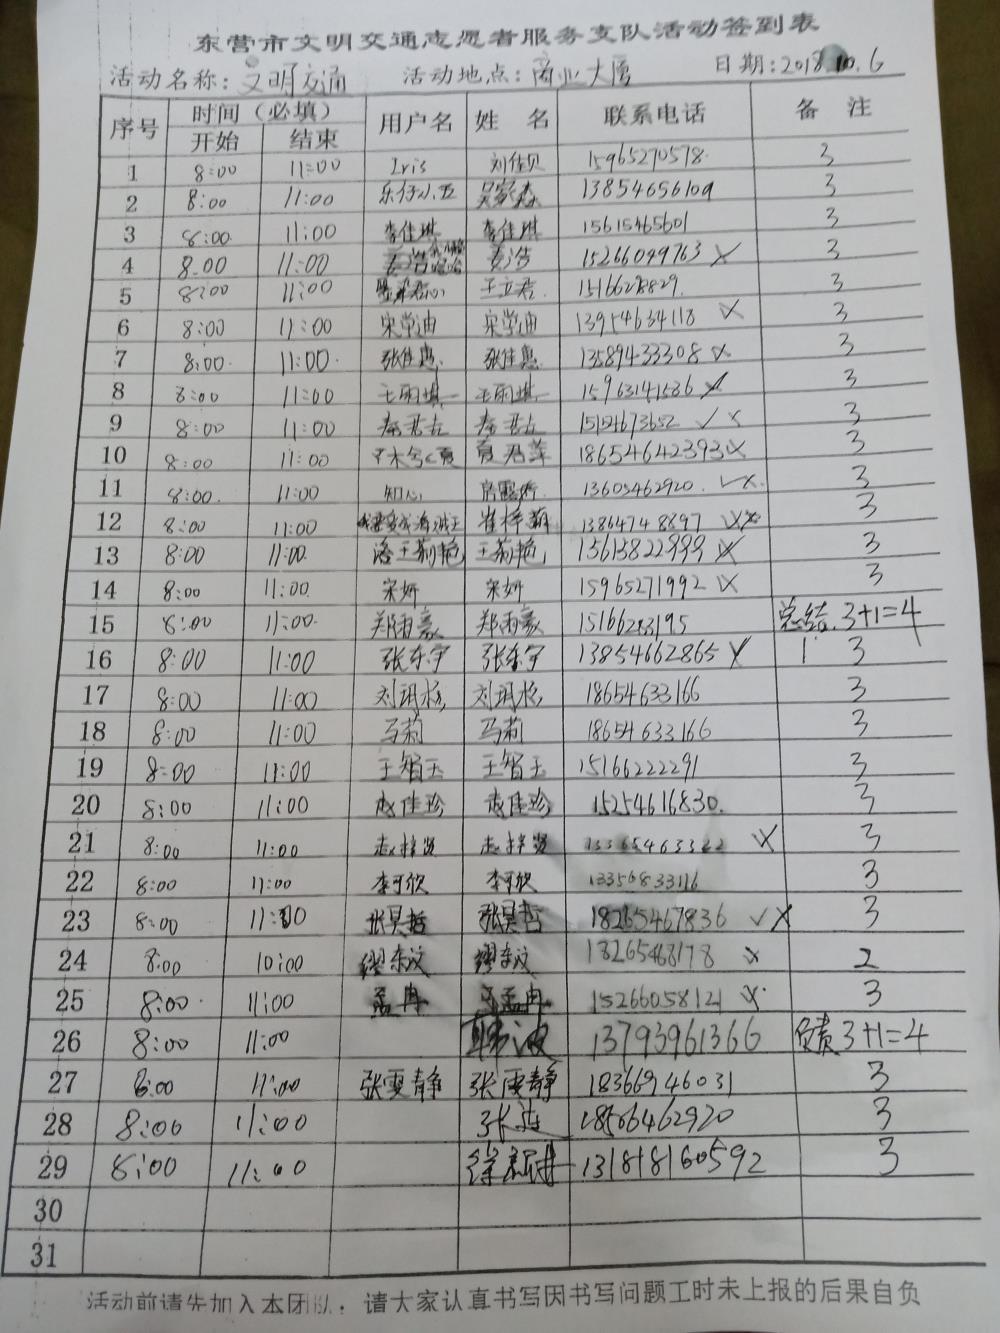 东营市文明交通志愿者服务支队活动签到表
活动名称：文明交通 活动地点：商业大厦 日期：2018.10.6
序号 时间（必填） 用户名 姓 名 联系电话 备 注
开始 结束
1 8:00 11:00 Iris 刘佳贝 15965270578 3
2 8:00 11:00 乐仔小五 13854656109 3
3 8:00 11:00 李佳琪 李佳琪 15615465601 3
4 8:00 11:00 姜浩 姜浩 15266049763 × 3
5 8:00 11:00 王立君 1516628829 3
6 8:00 11:00 宋学迪 宋学迪 13954634118 × 3
7 8:00 11:00 张佳惠 张佳惠 13589433308 × 3
8 8:00 11:00 王雨琪 王雨琪 15963141586 × 3
9 8:00 11:00 秦君左 秦君左 15124673652 ✓ × 3
10 8:00 11:00 夏君萍 18654642393 × 3
11 8:00 11:00 知心 13605462920 ✓ × 3
12 8:00 11:00 崔梓萌 13864748897 3
13 8:00 11:00 洛王莉艳 王莉艳 15613822999 × 3
14 8:00 11:00 宋妍 宋妍 15965271992 × 3
15 8:00 11:00 郑雨豪 郑雨豪 15166283195 总结 3+1=4
16 8:00 11:00 张东宇 张东宇 13854662865 × 3
17 8:00 11:00 刘玥杉 刘玥杉 18654633166 3
18 8:00 11:00 马莉 马莉 18654633166 3
19 8:00 11:00 王智玉 王智玉 15166222291 3
20 8:00 11:00 赵佳珍 赵佳珍 15254616830 3
21 8:00 11:00 赵梓贤 赵梓贤 13365463322 × 3
22 8:00 11:00 李可欣 李可欣 13356833116 3
23 8:00 11:00 张昊哲 张昊哲 18265467836 ✓ × 3
24 8:00 10:00 缪东汶 缪东汶 18265468178 × 2
25 8:00 11:00 孟冉 孟冉 15266058121 × 3
26 8:00 11:00 韩波 13793961366 负责 3+1=4
27 8:00 11:00 张雯静 张雯静 18366946031 3
28 8:00 11:00 18566462920 3
29 8:00 11:00 13181816 0592 3
30
31
活动前请先加入本团队，请大家认真书写因书写问题工时未上报的后果自负